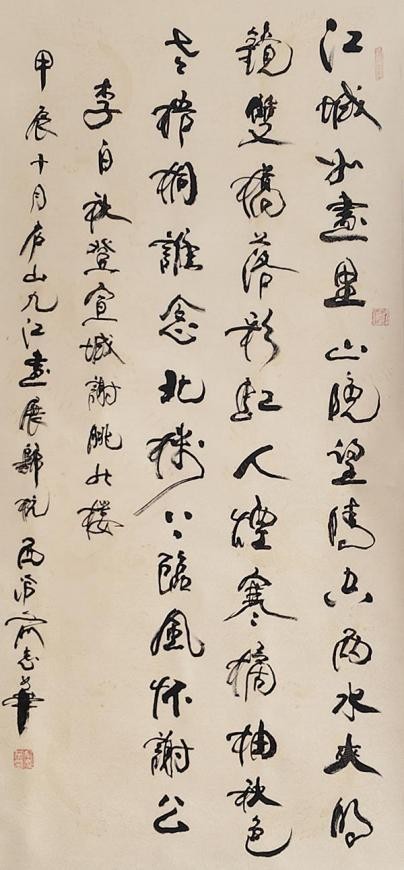 江城如畫里山曉望晴空兩水夾明
鏡雙橋落彩虹人煙寒橘柚秋色
老梧桐誰念北樓上臨風怀謝公
李白秋登宣城謝朓北樓
甲辰十月庐山九江畫展歸杭西泠俞志華